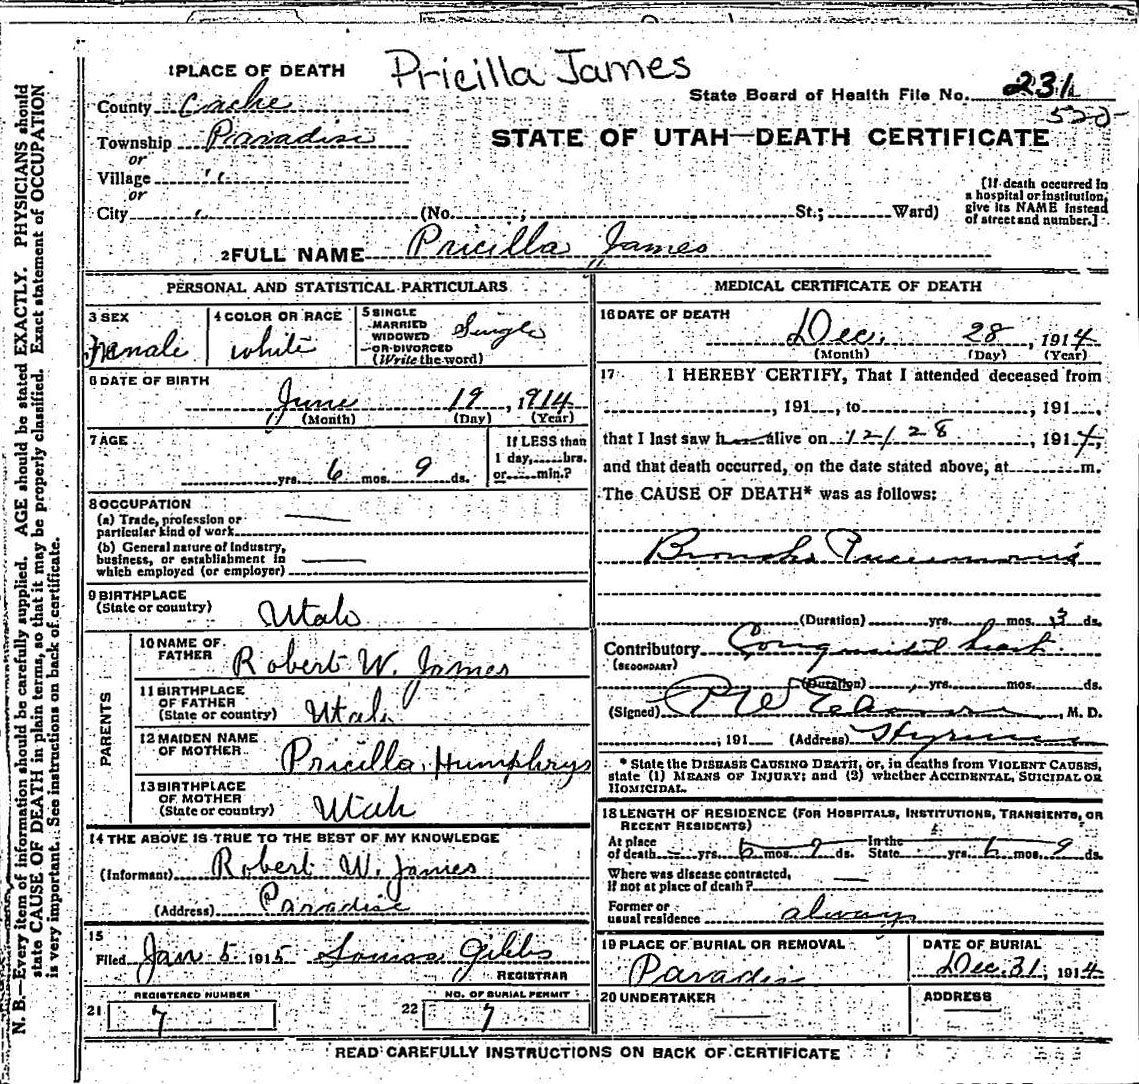 Pricilla James
1 PLACE OF DEATH
State Board of Health File No. 231
520
County Cache
Township Paradise
or
Village "
or
City "
STATE OF UTAH—DEATH CERTIFICATE
(No. ; St.; Ward)
[If death occurred in a hospital or institution, give its NAME instead of street and number.]
2 FULL NAME Pricilla James
PERSONAL AND STATISTICAL PARTICULARS
3 SEX Female
4 COLOR OR RACE white
5 SINGLE MARRIED WIDOWED OR DIVORCED (Write the word) Single
6 DATE OF BIRTH
June 19, 1914
(Month) (Day) (Year)
7 AGE
yrs. 6 mos. 9 ds.
If LESS than 1 day, hrs. or min.?
8 OCCUPATION
(a) Trade, profession or particular kind of work
(b) General nature of Industry, business, or establishment in which employed (or employer)
9 BIRTHPLACE (State or country) Utah
PARENTS
10 NAME OF FATHER Robert W. James
11 BIRTHPLACE OF FATHER (State or country) Utah
12 MAIDEN NAME OF MOTHER Pricilla Humphrys
13 BIRTHPLACE OF MOTHER (State or country) Utah
14 THE ABOVE IS TRUE TO THE BEST OF MY KNOWLEDGE
(Informant) Robert W. James
(Address) Paradise
15
Filed Jan 5 1915 Gibbs
REGISTRAR
21 REGISTERED NUMBER 7
22 NO. OF BURIAL PERMIT 7
MEDICAL CERTIFICATE OF DEATH
16 DATE OF DEATH
Dec. 28, 1914
(Month) (Day) (Year)
17 I HEREBY CERTIFY, That I attended deceased from
, 191 , to , 191 ,
that I last saw h alive on 12/28, 1914,
and that death occurred, on the date stated above, at m.
The CAUSE OF DEATH* was as follows:
Broncho Pneumonia
(Duration) yrs. mos. 3 ds.
Contributory (SECONDARY) Congenital heart
(Duration) yrs. mos. ds.
(Signed) , M. D.
, 191 (Address) Hyrum
* State the DISEASE CAUSING DEATH, or, in deaths from VIOLENT CAUSES, state (1) MEANS OF INJURY; and (2) whether ACCIDENTAL, SUICIDAL OR HOMICIDAL.
18 LENGTH OF RESIDENCE (FOR HOSPITALS, INSTITUTIONS, TRANSIENTS, OR RECENT RESIDENTS)
At place of death yrs. 6 mos. 9 ds. In the State yrs. 6 mos. 9 ds.
Where was disease contracted, if not at place of death?
Former or usual residence always
19 PLACE OF BURIAL OR REMOVAL Paradise
DATE OF BURIAL Dec. 31, 1914
20 UNDERTAKER
ADDRESS
READ CAREFULLY INSTRUCTIONS ON BACK OF CERTIFICATE
N. B.—Every item of information should be carefully supplied. AGE should be stated EXACTLY. PHYSICIANS should
state CAUSE OF DEATH in plain terms, so that it may be properly classified. Exact statement of OCCUPATION
is very important. See instructions on back of certificate.